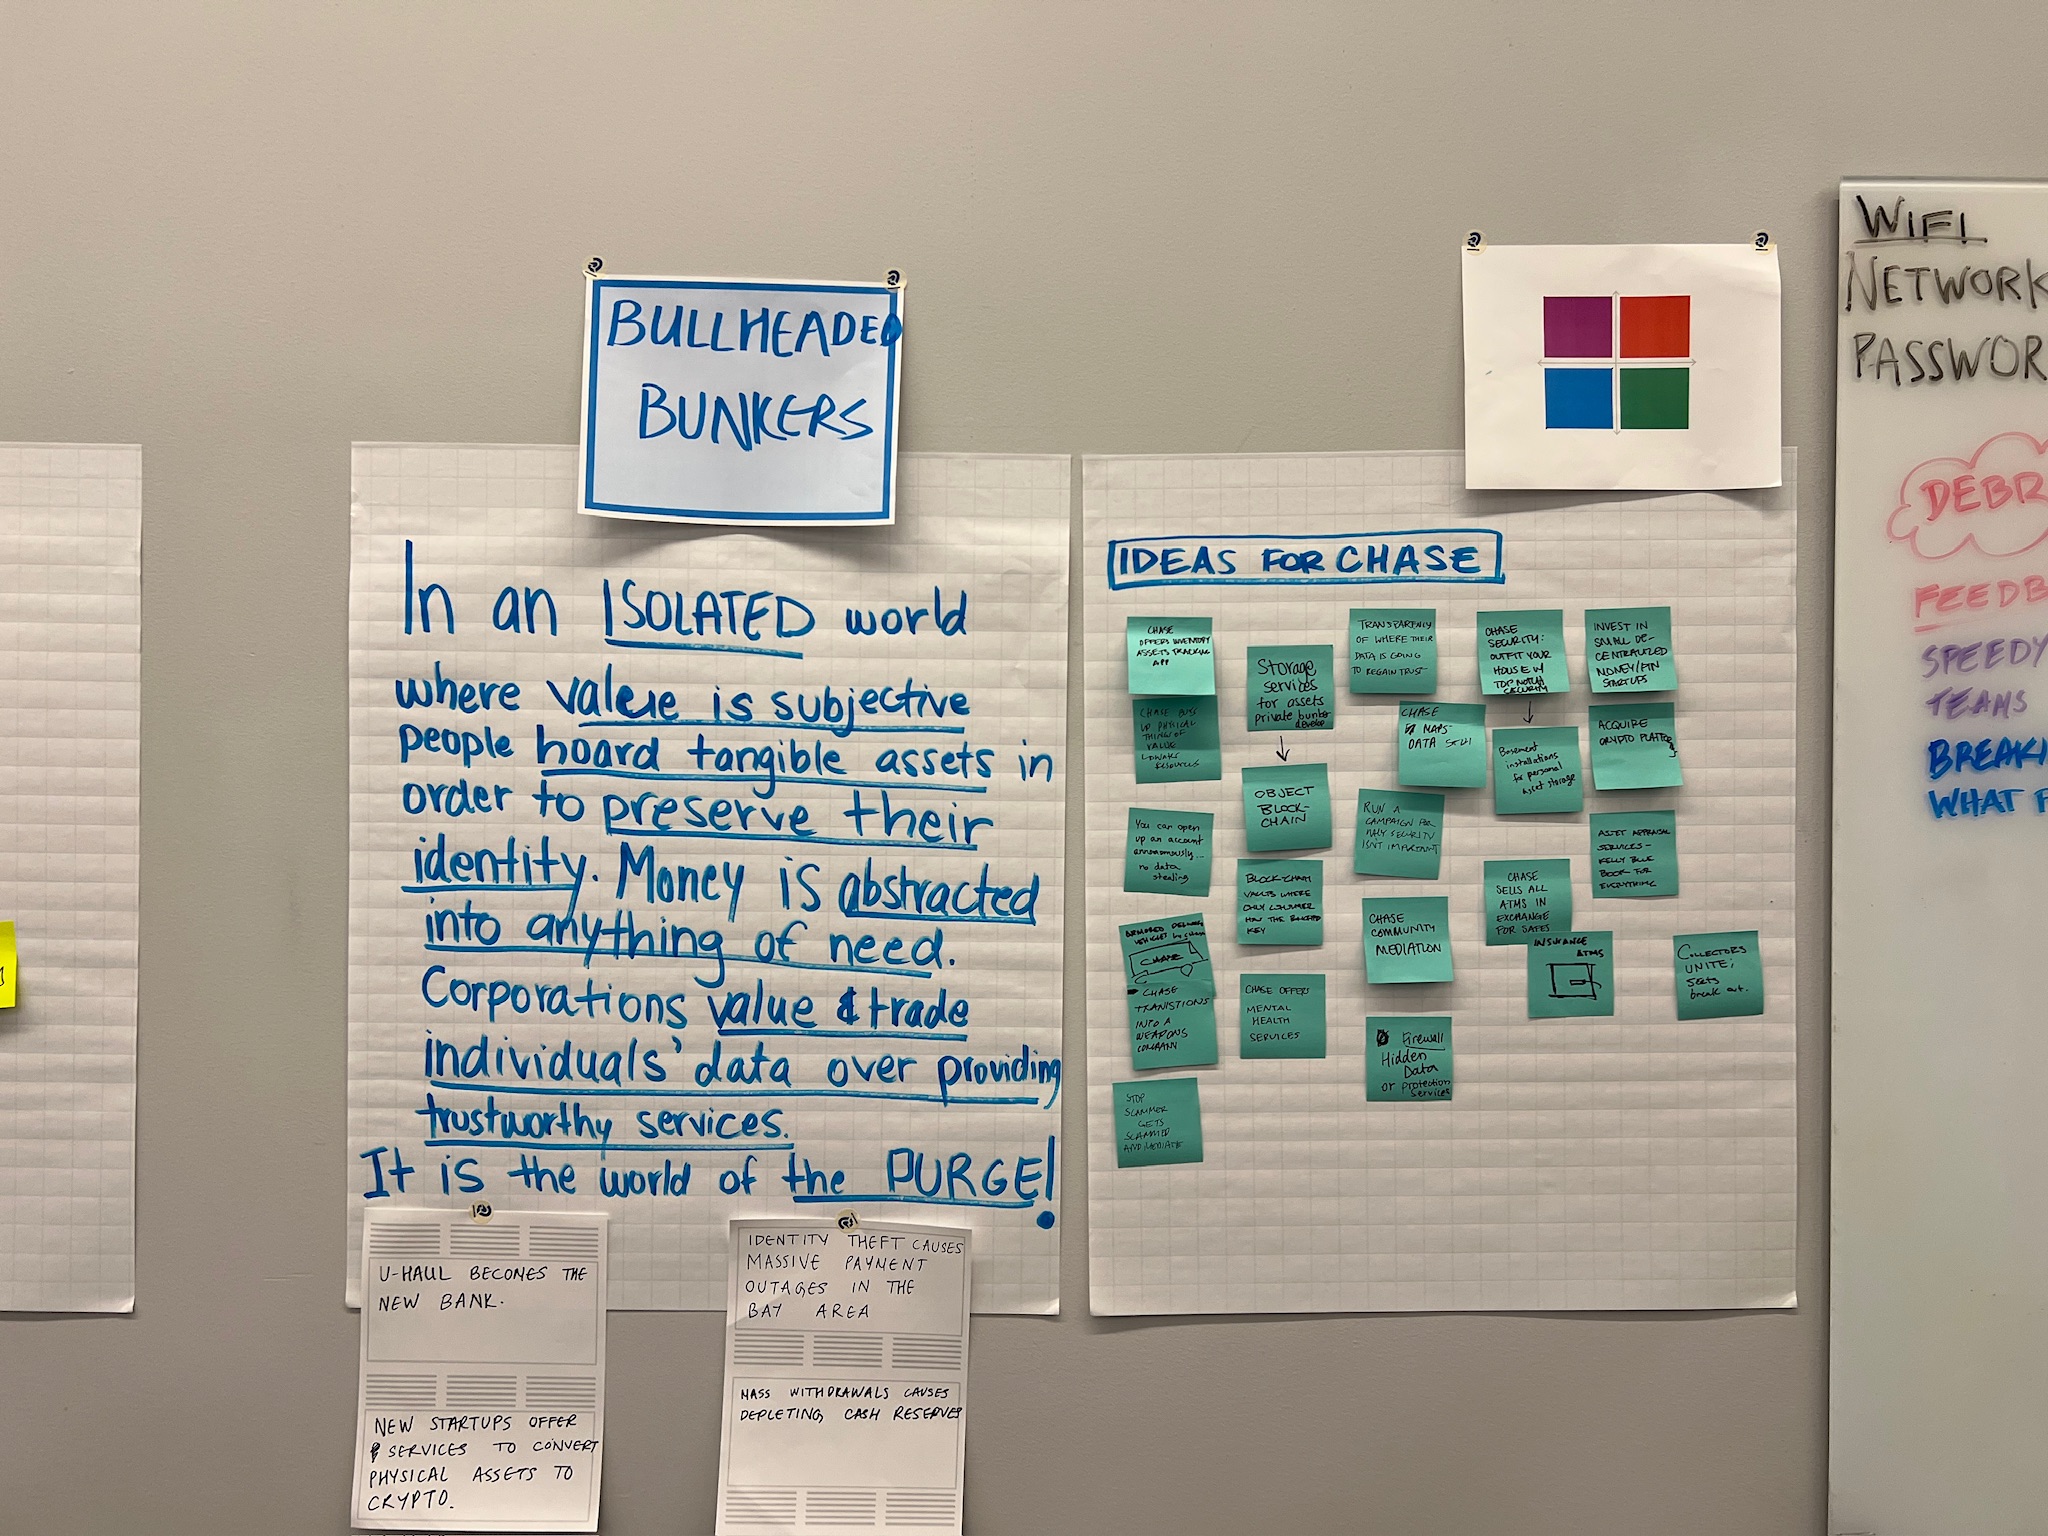 BULLHEADED
BUNKERS
In an ISOLATED world
where value is subjective
people hoard tangible assets in
order to preserve their
identity. Money is abstracted
into anything of need.
Corporations value & trade
individuals' data over providing
trustworthy services.
It is the world of the PURGE!
U-HAUL BECOMES THE
NEW BANK.
NEW STARTUPS OFFER
SERVICES TO CONVERT
PHYSICAL ASSETS TO
CRYPTO.
IDENTITY THEFT CAUSES
MASSIVE PAYMENT
OUTAGES IN THE
BAY AREA
MASS WITHDRAWALS CAUSES
DEPLETING CASH RESERVES
IDEAS FOR CHASE
CHASE
OFFERS INVENTORY
ASSETS TRACKING
APP
CHASE BUYS
UP PHYSICAL
THINGS OF
VALUE
RESOURCES
You can open
up an account
annonomously...
no data
stealing
ARMORED DELIVERY
VEHICLES by chase
CHASE
CHASE
TRANSITIONS
INTO A
WEAPONS
COMPANY
STOP
SCAMMER
GETS
SCAMMED
AND MEDIATE
Storage
services
for assets
private bunker
develop
OBJECT
BLOCK-
CHAIN
BLOCK-CHAIN
VAULTS WHERE
ONLY
THE
KEY
CHASE OFFERS
MENTAL
HEALTH
SERVICES
TRANSPARENCY
OF WHERE THEIR
DATA IS GOING
TO REGAIN TRUST
CHASE
MAPS
DATA
RUN A
CAMPAIGN FOR
WHY SECURITY
ISN'T IMPORTANT
CHASE
COMMUNITY
MEDIATION
Firewall
Hidden
Data
or protection
services
CHASE
SECURITY:
OUTFIT YOUR
HOUSE W/
TOP NOTCH
SECURITY
Basement
installations
for personal
asset storage
CHASE
SELLS ALL
ATMS IN
EXCHANGE
FOR SAFES
INSURANCE
ATMS
INVEST IN
SMALL DE-
CENTRALIZED
MONEY/FIN
STARTUPS
ACQUIRE
CRYPTO PLATFORMS
ASSET APPRAISAL
SERVICES -
KELLY BLUE
BOOK FOR
EVERYTHING
COLLECTORS
UNITE;
sects
break out.
WIFI
NETWORK
PASSWOR
DEBR
FEEDB
SPEEDY
TEAMS
BREAKI
WHAT